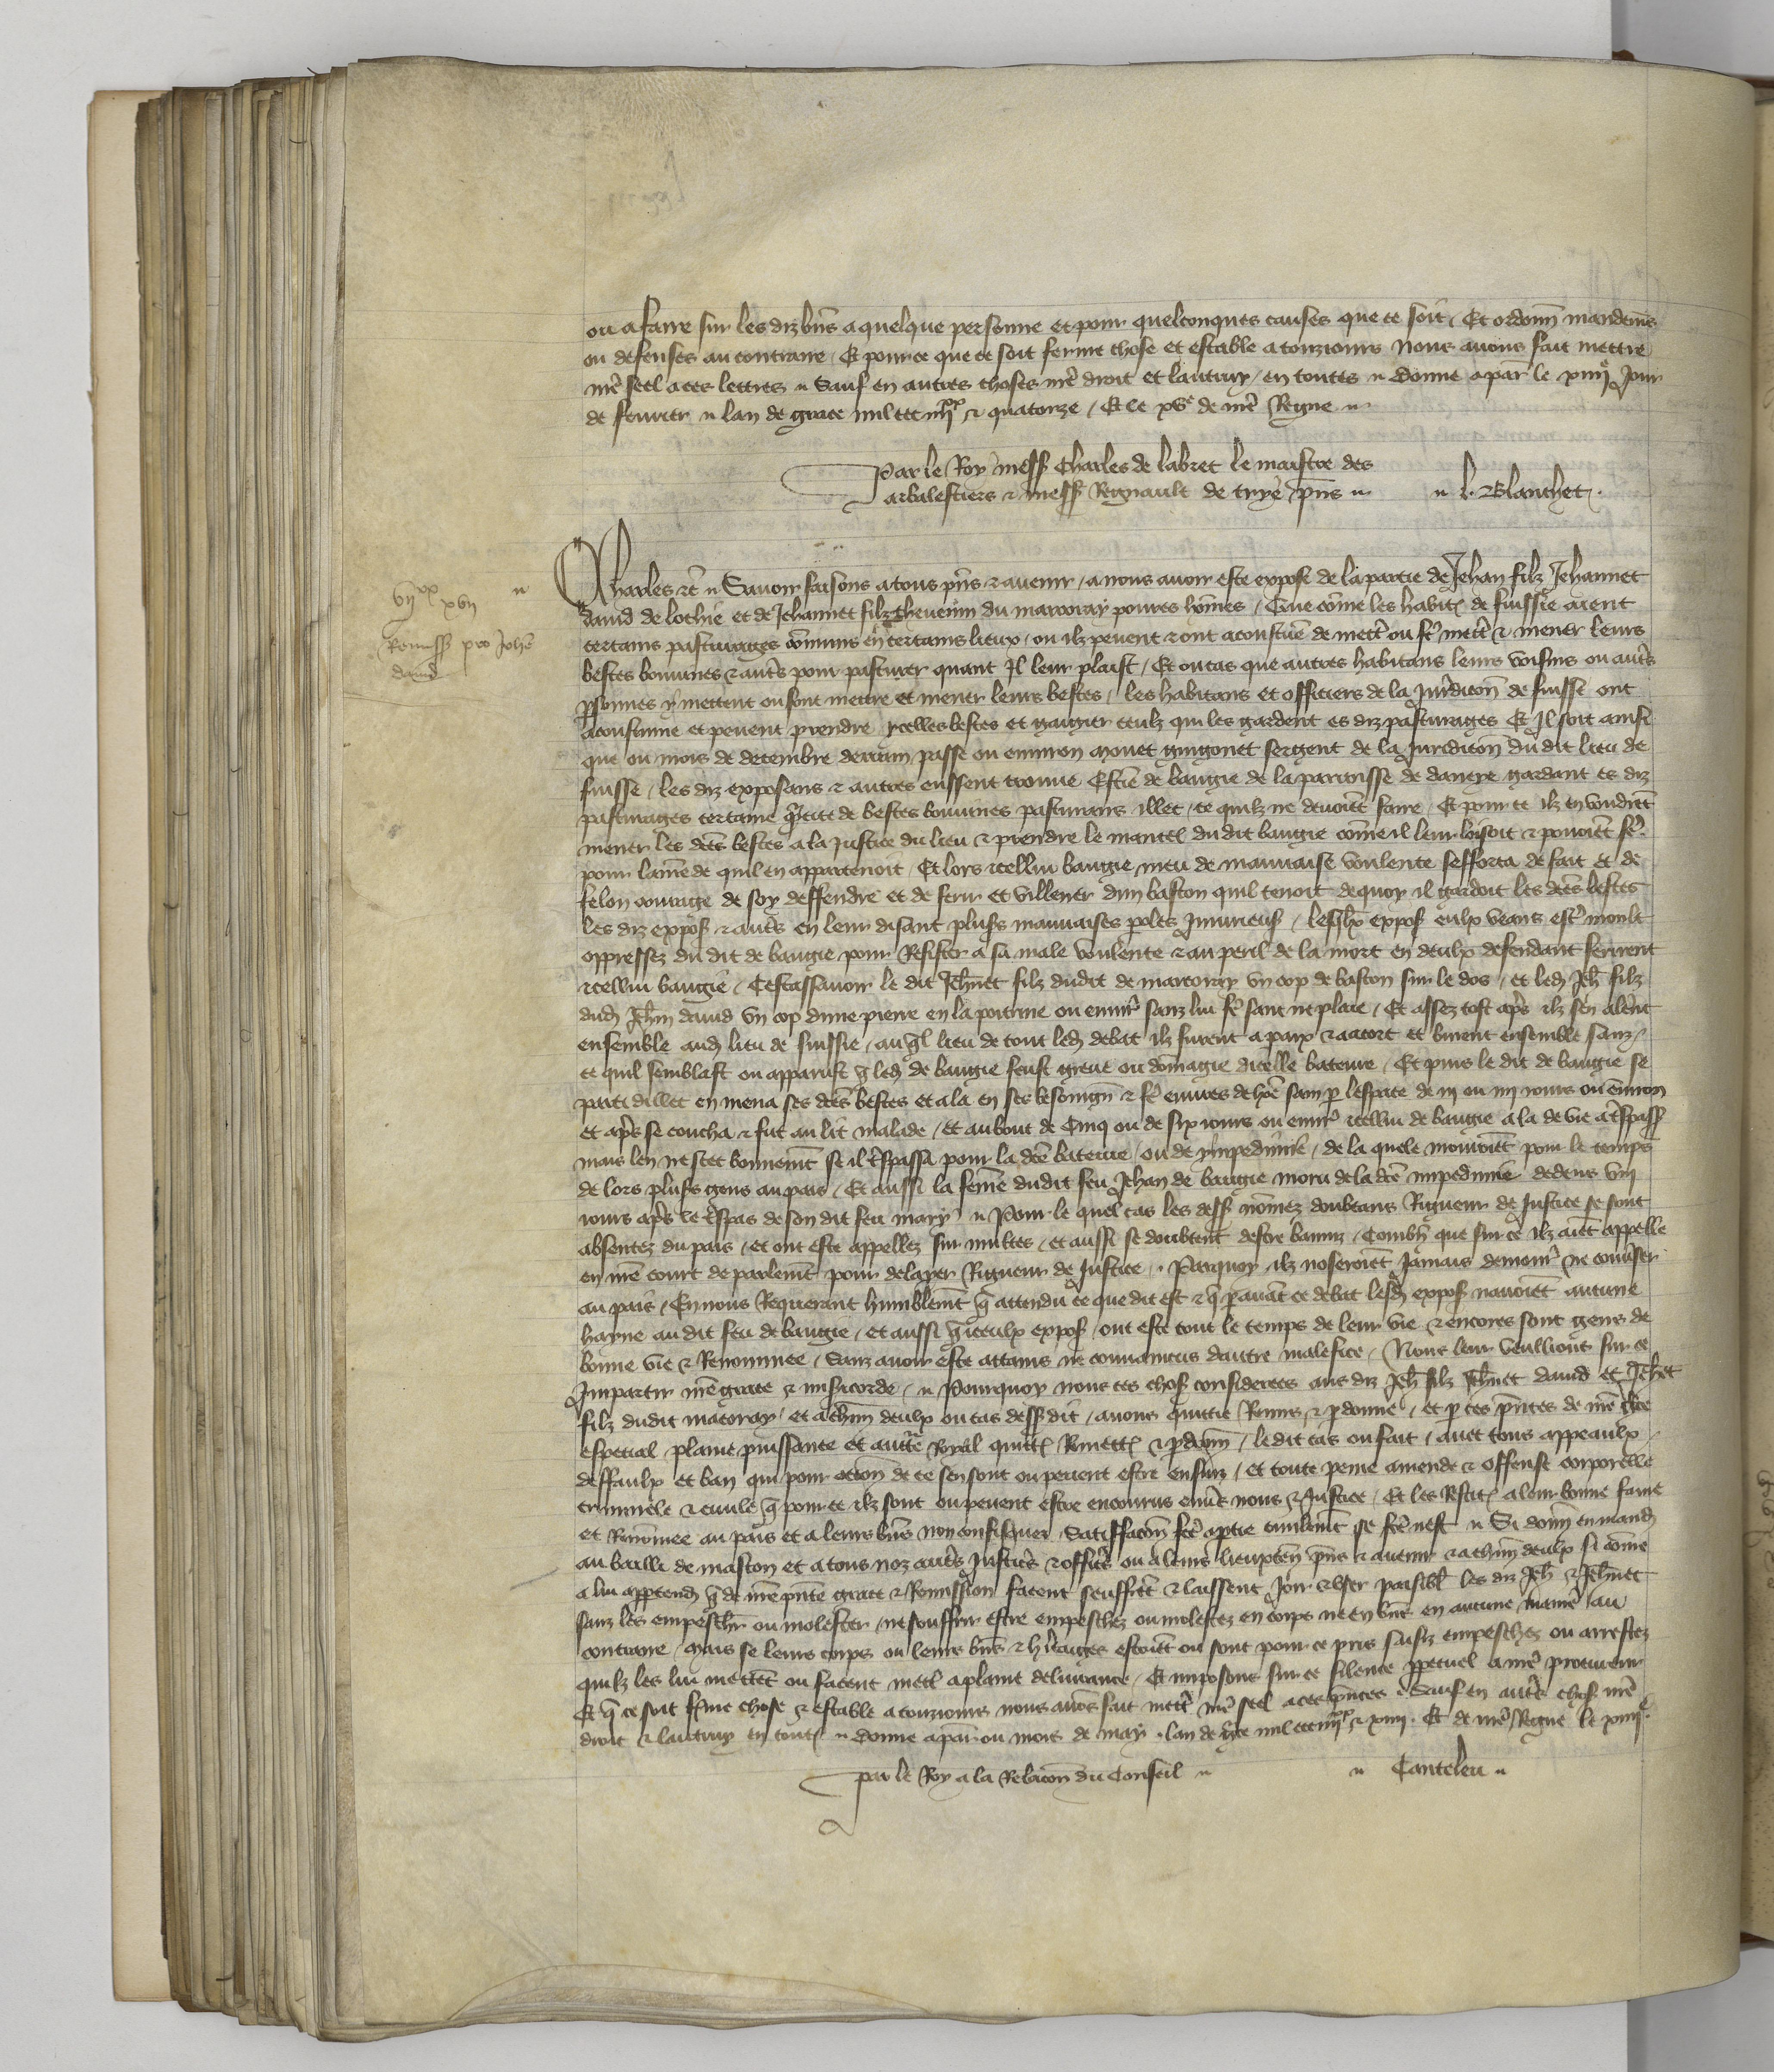 ou a faire sur les diz biens a quelque personne et pour quelconques causes que ce soit / Et ordonn mandems
ou defenses au contraire / Et pour ce que ce soit ferme chose et estable a touzjours nous avons fait mettre
nre seel a ces lettres // Sauf en autres choses nre droit et lautruy / en toutes // Donne a par le xiiiie jour
de fevrier // lan de grace mil ccc iiiixx & quatorze / Et le xve de nre Regne //
Par le Roy mess Charles de labret le maistre des
arbalestiers & mess Regnault de trye pns // // l. Blanchet.
viixx xvii //
Remiss pro Johe
david
Charles etc // Savoir faisons a tous pns & avenir / a nous avoir este expose de la partie de Jehan filz Jehannet
david de lochie et de Jehannet filz thevenin du marcoray povres homes / Que come les habit de fuissie aient
certains pasturages comuns en certains lieux / ou ilz pevent & ont acoustume de mett ou fe mett & mener leurs
bestes bouvines & auts pour pasturer quant Il leur plaist / Et ou cas que autres habitans leurs voisins ou auts
psonnes y mettent ou font mettre et mener leurs bestes / les habitans et officiers de la juridicon de fuisse ont
acoustume et pevent prendre ycelles bestes et gaigier ceulz qui les gardent es diz pasturages Et Il soit ainsi
que ou mois de decembre derrain passe ou environ monet guigonet sergent de la Juridicon du dit lieu de
fuisse / les diz exposans & autres eussent trouve Estie de baugie de la parroisse de davaye gardant es diz
pasturages certaine qtite de bestes bouvines pasturans illec / ce quilz ne devoient faire / Et pour ce ilz en voudret
mener les des bestes a la justice du lieu & prendre le mantel du dit baugie come il leur loisoit & povoiet fe
pour lamede quil en appartenoit / Et lors icellui baugie meu de mauvaise voulente sefforca de fait et de
felon courage de soy deffendre et de ferir et villener dun baston quil tenoit de quoy il gardoit les des bestes
les diz expos & auts en leur disant pluss mauvaises poles Injurieus / lesqlx expos eulx veans est moult
oppressez du dit de baugie pour Resister a sa male voulente & au peril de la mort en deulx defendant ferirent
icellui baugie / Cestassavoir le dit Jehnet filz dudit de marcoray un cop de baston sur le dos / et led Jeh filz
dud Jehnin david un cop dune pierre en la poitrine ou envir sanz lui fe sanc ne plaie / Et assez tost aps ilz sen alent
ensemble aud lieu de fuissie / au ql lieu de tout led debat ilz furent a paix & acort et burent ensemble sanz
ce quil semblast ou apparust q led de baugie feust greve ou domagie dicelle bateure / Et puis le dit de baugie se
parti dillec en mena ses des bestes et ala en ses besoingn & fe euvres de hoe sain p lespace de iii ou iiii jours ou environ
et aps se coucha & fut au lit malade / Et au bout de Cinq ou de six jours ou envir icellui de baugie ala de vie a tspass
mais len ne scet bonnemt se il tspassa pour la de bateure / ou de ympedimie / de la quele mouroiet pour le temps
de lors pluss gens au pais / Et aussi la feme dudit feu Jehan de baugie moru de la de impedimie dedens viii
jours aps le tspas de son dit feu mary // Pour le quel cas les dess nomez doubtans Rigueur de Justice se sont
absentez du pais / et ont este appellez sur multes / et aussi se doubtent destre baniz / Combn que sur ce ilz aiet appelle
en nre court de parlemt pour delayer Rigueur de Justice / Parquoy ilz noseroiet Jamais demour ne conviser
au pais / En nous Requerant humblemt q attendu ce que dit est & q p avat ce debat lesd expos navoiet aucune
hayne au dit feu de baugie / et aussi q iceulx expos / ont este tout le temps de leur vie & encores sont gens de
bonne vie & Renommee / Sanz avoir este attains ne convaincus dautre malefice / Nous leur veullions sur ce
Impartir nre grace & misicorde / // Pourquoy nous ces chos considerees aus diz Jeh filz Jehnet david et Jehnet
filz dudit macoray / et a chun deulx ou cas dessdit / avons quittie Remis & pdonne / et p ces pntes de nre grce
especial plaine puissance et aucte Royal quitt Remett & pdonn / le dit cas ou fait / avec tous appeaulx
deffaulx et ban qui pour occon de ce sen sont ou pevent estre ensuiz / et toute peine amende & offense corporelle
criminele & civile q pour ce ilz sont ou pevent estre encourus envs nous & Justice / Et les Restit a leur bonne fame
et Renomee au pais et a leurs biens non confisquez Satisfacon fce a ptie civilemt se fce nest // Si donn en mand
au bailli de mascon et a tous noz auts Justics & offics ou a leurs lieuxten pns & avenir & a chun deulx si come
a lui apptend q de nre pnte grace & Remission facent seuffret & laissent Joir & user paisibl les diz Jeh & Jehnet
sanz les empeschr ou molester / ne souffrir estre empeschez ou molestez en corps ne en bns en aucune manie au
contraire / Mais se leurs corps ou leurs bns & hitaiges estoiet ou sont pour ce pris saisiz empeschez ou arrestez
quilz les lui mettet ou facent mett a plaine delivrance / Et imposons sur ce silence ppetuel a nre procureur
Et q ce soit fme chose & estable a touzjours nous avos fait mett nre seel a ces pntes Sauf en auts chos nre
droit & lautruy en tout // Donne a par ou mois de may lan de grce mil ccc iiiixx & xiiii. Et de nre Regne le xiiiie
Par le Roy a la Relacon du Conseil // // Canteleu //